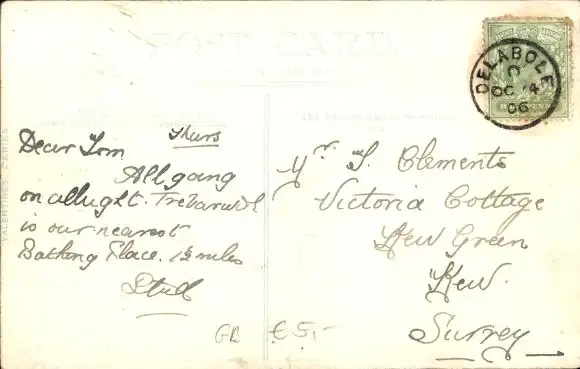 POST CARD
DELABOLE
C
OC 4
06
Thurs
Dear Tom
All going
on allright. Trebarwith
is our nearest
Bathing Place. 1½ miles
Mr. T. Clements
Victoria Cottage
Kew Green
Kew.
Surrey
GB €5,-
VALENTINES SERIES